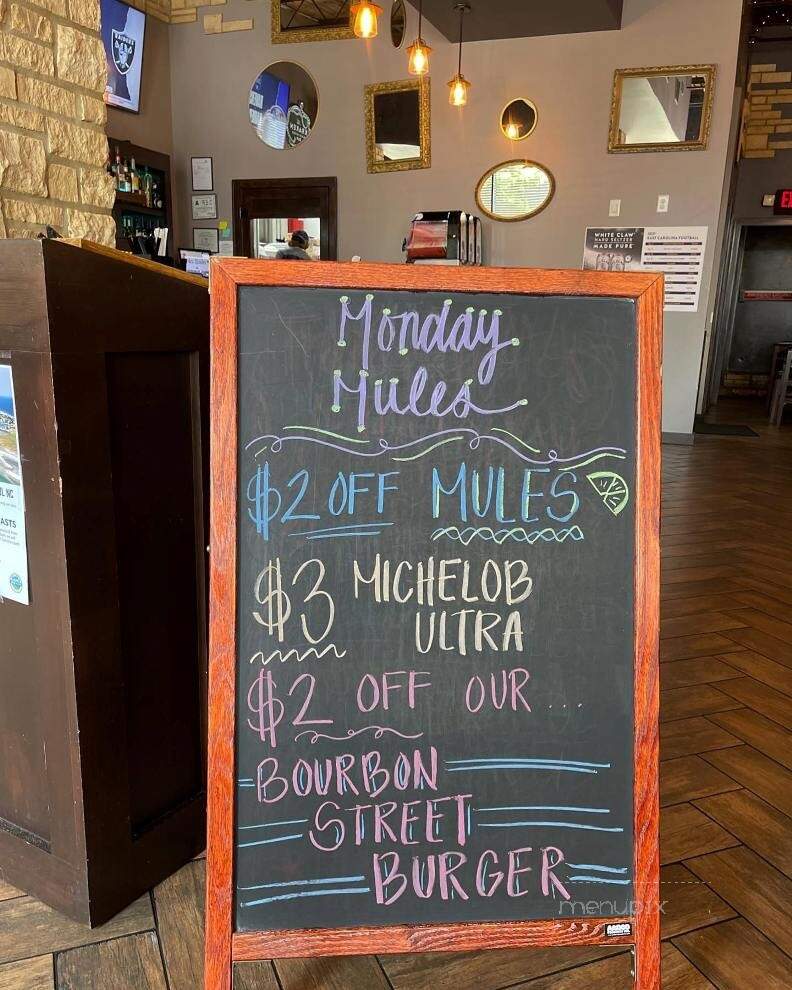 RAIDERS
WHITE CLAW
HARD SELTZER
MADE PURE
EAST CAROLINA FOOTBALL
Monday
Mules
$2 OFF MULES
$3 MICHELOB
ULTRA
$2 OFF OUR ...
BOURBON
STREET
BURGER
menupix